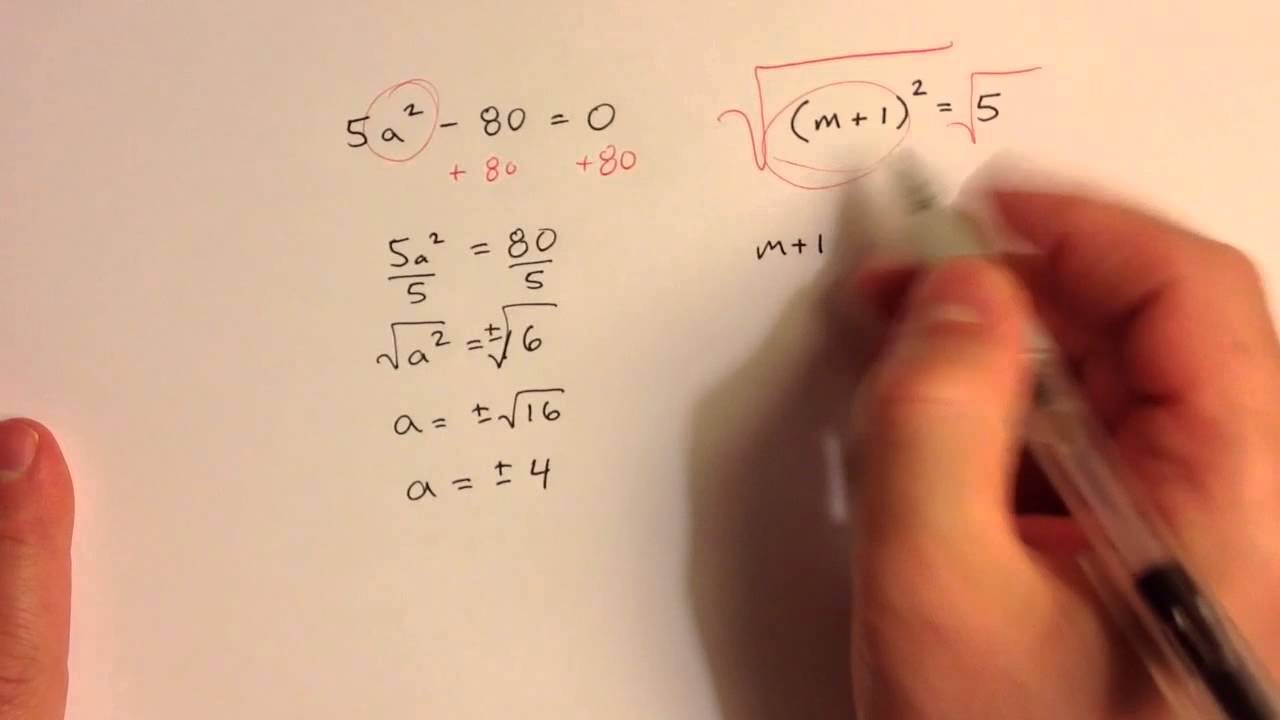 5a² - 80 = 0
+ 80 +80
5a² = 80
5 5
√a² = ±√16
a = ±√16
a = ± 4
√(m+1)² = √5
m+1